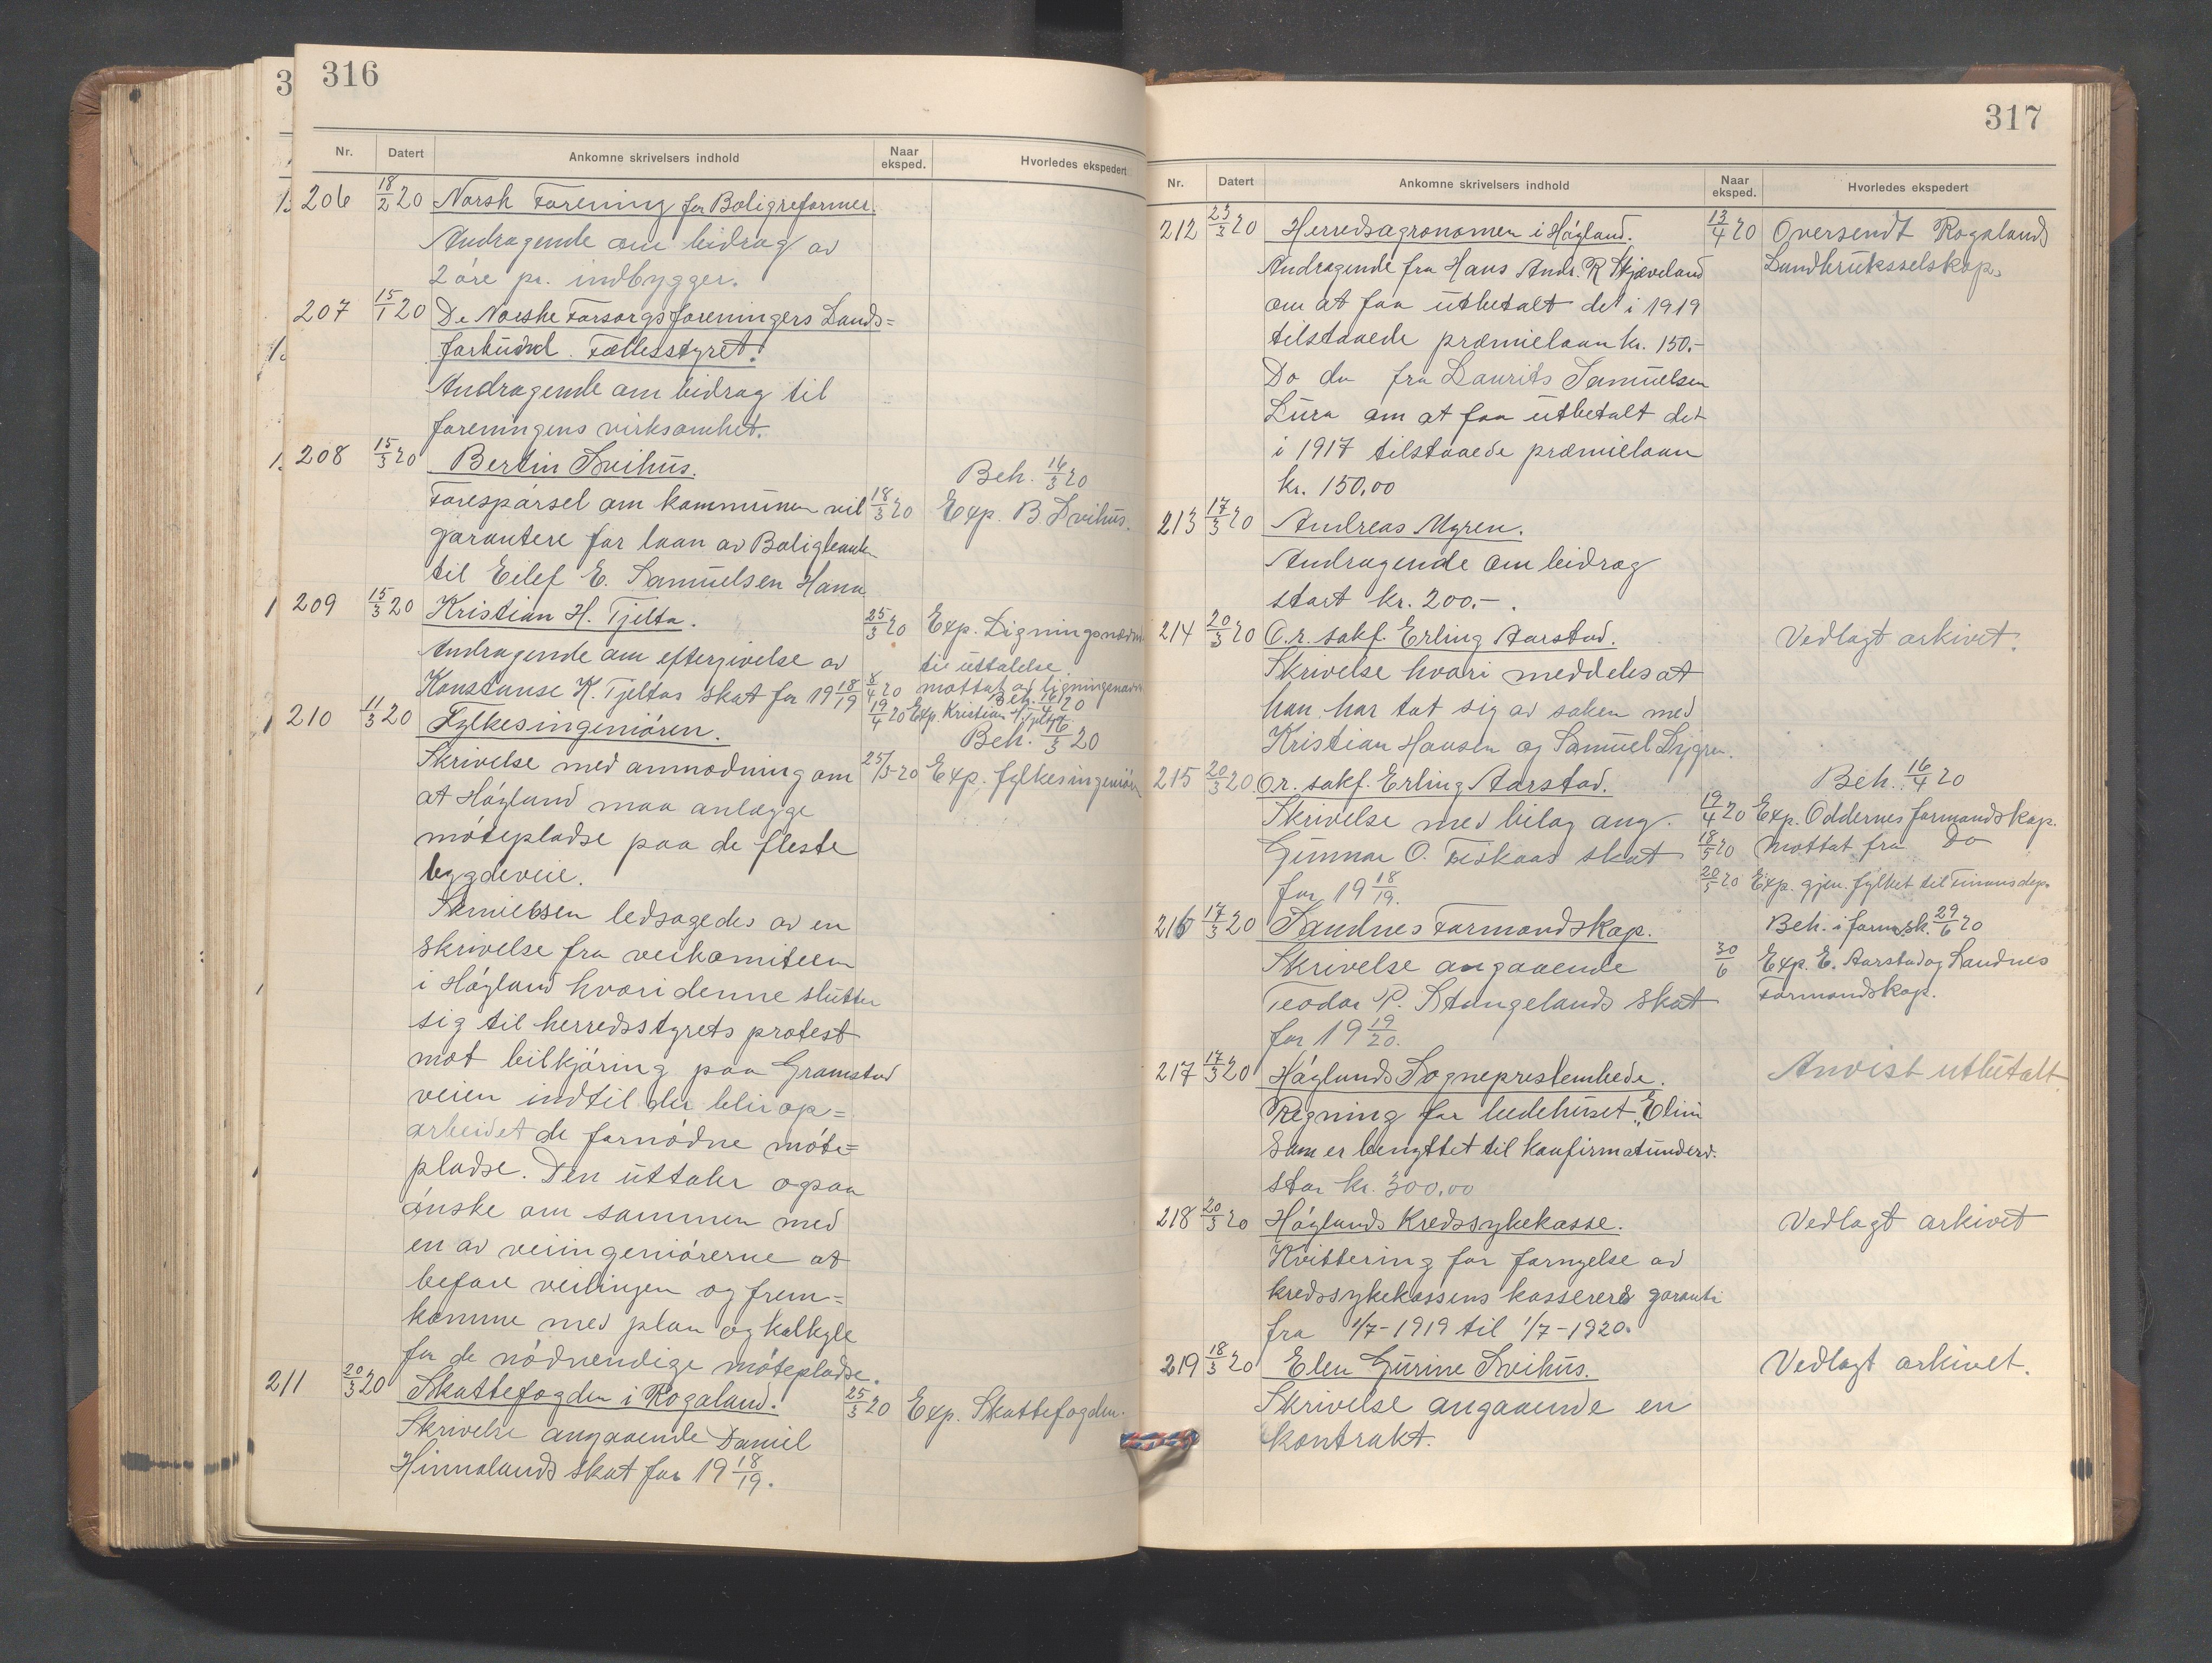 316
Nr. Datert Ankomne skrivelsers indhold Naar eksped. Hvorledes ekspedert
206 18/2 20 Norsk Forening for Boligreformer.
Andragende om bidrag av
2 øre pr. indbygger.
207 15/1 20 De Norske Forsorgsforeningers Lands=
forbund. Fællesstyret.
Andragende om bidrag til
foreningens virksomhet.
208 15/3 20 Bertin Svihus. Beh. 16/3 20
Forespørsel om kommunen vil 18/3 20 Exp. B Svihus.
garantere for laan av Boligbanken
til Eilef E. Samuelsen Hana
209 15/3 20 Kristian H. Tjelta. 25/3 20 Exp. Ligningsnævn
Andragende om eftergivelse av til uttalelse
Konstanse K. Tjeltas skat for 19 18/19 8/4 20 mottat av ligningsnævn
Beh. 16/4 20
19/4 20 Exp. Kristian H. Tjelta
210 11/3 20 Fylkesingeniøren. Beh. 16/3 20
Skrivelse med anmodning om 25/3-20 Exp. fylkesingeniøren
at Høyland maa anlægge
møtepladse paa de fleste
bygdeveie.
Skrivelsen ledsagedes av en
skrivelse fra veikomiteen
i Høyland hvori denne slutter
sig til herredsstyrets protest
mot bilkjøring paa Gramstad
veien indtil der blir op=
arbeidet de fornødne møte=
pladse. Den uttaler ogsaa
ønske om sammen med
en av veiingeniørerne at
befare veilinjen og frem=
komme med plan og kalkyle
for de nødvendige møtepladse.
211 20/3 20 Skattefogden i Rogaland. 25/3 20 Exp. Skattefogden.
Skrivelse angaaende Daniel
Hinnalands skat for 19 18/19.
317
Nr. Datert Ankomne skrivelsers indhold Naar eksped. Hvorledes ekspedert
212 23/3 20 Herredsagronomen i Høyland. 13/4 20 Oversendt Rogalands
Andragende fra Hans Andr. R Skjæveland Landbruksselskap.
om at faa utbetalt det i 1919
tilstaaede præmielaan kr. 150.-
Do do fra Laurits Samuelsen
Lura om at faa utbetalt det
i 1917 tilstaaede præmielaan
kr. 150,00
213 17/3 20 Andreas Myren.
Andragende om bidrag
stort kr. 200.-.
214 20/3 20 O.r. sakf. Erling Aarstad. Vedlagt arkivet.
Skrivelse hvori meddeles at
han har tat sig av saken med
Kristian Hansen og Samuel Lygre.
215 20/3 20 O.r. sakf. Erling Aarstad. Beh. 16/4 20
Skrivelse med bilag ang. 19/4 20 Exp. Oddernes formandskap.
Gunnar O. Fiskaas skat 18/5 20 Mottat fra Do
for 19 18/19. 20/5 20 Exp. gjen. fylket til Finansdep.
216 17/3 20 Sandnes Formandskap. Beh. i formsk. 29/6 20
Skrivelse angaaende 30/6 Exp. E. Aarstad og Sandnes
Teodor P. Stangelands skat Formandskap.
for 19 19/20.
217 17/3 20 Høylands Sogneprestembede. Anvist utbetalt
Regning for bedehuset "Elim
som er benyttet til konfirmatunderv.
stor kr. 300,00
218 20/3 20 Høylands Kredssykekasse. Vedlagt arkivet
Kvittering for fornyelse av
kredssykekassens kasserers garanti
fra 1/7-1919 til 1/7-1920.
219 18/3 20 Elen Gurine Svihus. Vedlagt arkivet.
Skrivelse angaaende en
kontrakt.